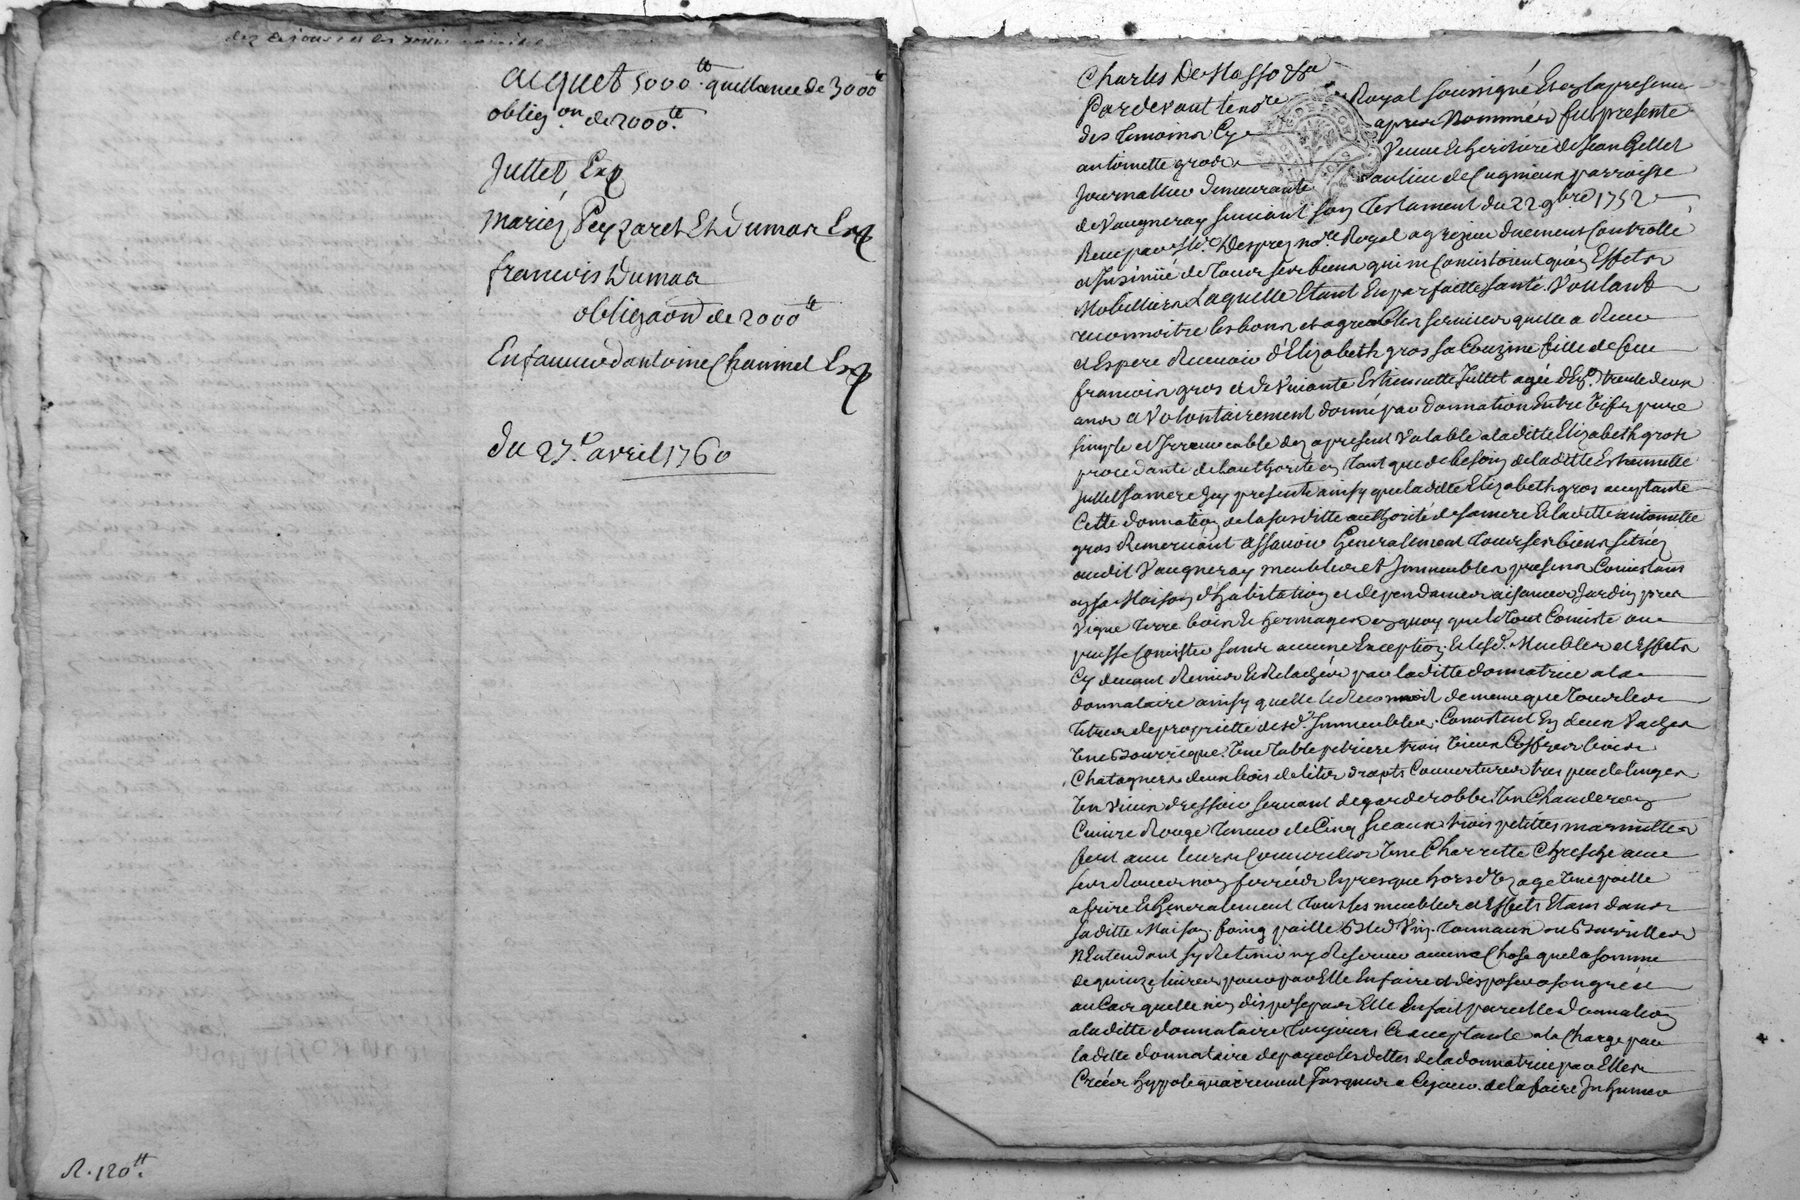 acquet 5000tt quittance de 3000tt
obligon de 2000tt
Juttet Exp
Mariéz Peyzaret Et Dumas Exp
francois Dumas
obligaon de 2000tt
En faveur d'antoine Chaumel Exp
du 27e avril 1760
R. 120tt
Charles De
Pardevant le nore Royal soussigné Et en la presence
des temoins Cy apres Nommés fut presente
antoinette gros Veuve Et heritiere de Jean Gellet
Journallier demeurante au lieu de Cugnieux parroisse
de Vaugneray suivant son testament du 22 9bre 1752
Receu par Me Despres nore Royal a grezieu duement Controllé
et Insinué de tous ses biens qui ne Consistoient qu'en Effets
Mobilliers Laquelle Etant En parfaitte santé. Voulant
reconnoitre les bons et agreables services quelle a Receu
et Espere Recevoir d'Elizabeth gros sa Couzine fille de feu
francois gros et de Vivante Estiennette Juttet agée d'En.on trente deux
ans a Volontairement donné par donnation Entre Vifs pure
simple et Irrevocable dez apresent Valable a laditte Elizabeth gros
procedante de l'authorité en tant que de besoin de laditte Estiennette
Juttet sa mere Icy presente ainsy que laditte Elizabeth gros acceptante
Cette donnation de la susditte authorité de sa mere Et laditte antoinette
gros Remerciant assavoir Generalement tous ses biens situéz
audit Vaugneray meubles et Immeubles presens Consistans
en sa Maison d'habitation et dependances aisances Jardin prez
Vigne terre bois Et hermages en quoy que le tout Consiste ou
puisse Consister sans aucune Exception. Et lesd. Meubles et Effets
Cy devant Remis Et Relachéz par laditte donnatrice a la
donnataire ainsy quelle le Reconnoit de meme que tous les
titres de proprietté desd. Immeubles. Consistent En deux Vaches
Une Bourrique. Une table petriere trois Vieux Coffres bois
Chatagniers deux bois de lits drapts Couvertures tres peu de linges
Un Vieux dressoir servant de garderobbe. Un Chauderon
Cuivre Rouge teneur de Cinq seaux trois petittes marmittes
font avec leurs Couvercles Une Charrette avec
ses Roues non ferrées Et presque hors d'Usage Une poelle
a frire Et Generalement tous les meubles et Effets Etans dans
saditte Maison. foing paille Bled Vin. tonnaux ou Barrilles
N'Entendant sy Retenir ny Reserver aucune Chose que la somme
de quinze livres pour par Elle En faire et disposer a son gré et
au Cas quelle n'en dispose pas Elle En fait pareille donnation
a laditte donnataire toujours Acceptante a la Charge par
laditte donnataire de payer les dettes de la donnatrice par Elle
Créés hypotequairement Jusques a Ce jour. de la faire Inhumer